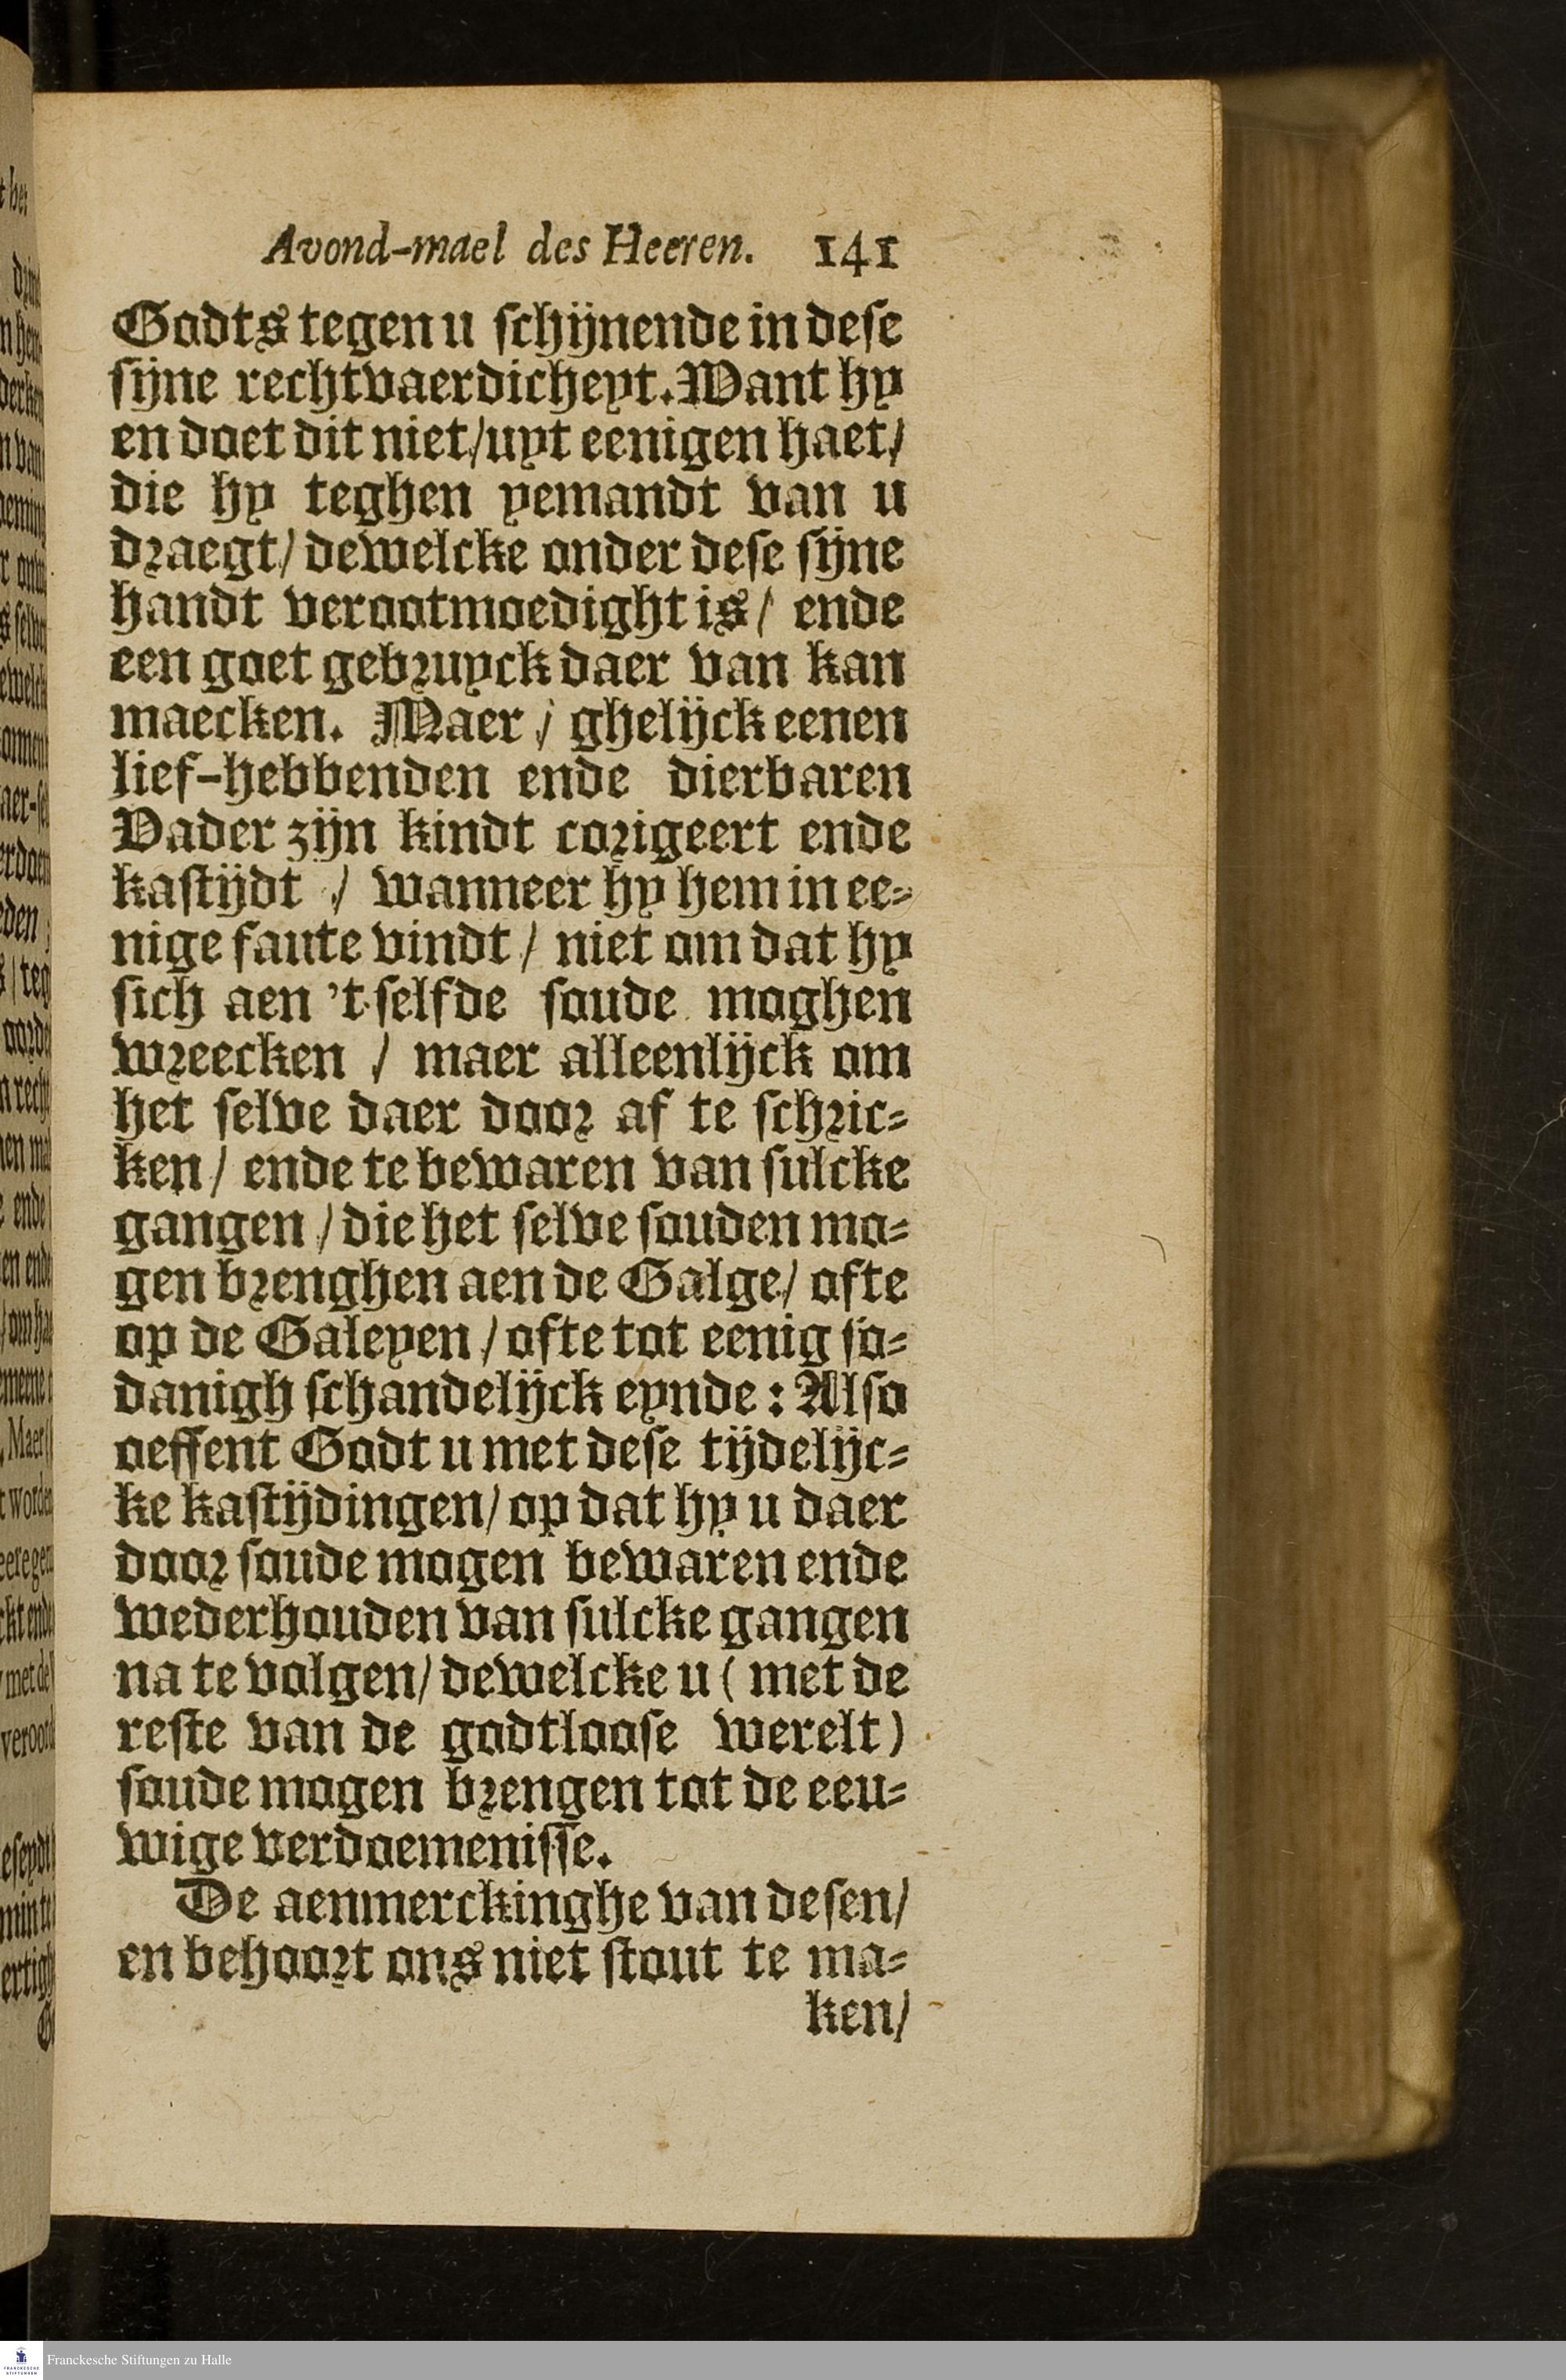 Avond-mael des Heeren. 141
Godts tegen u schijnende in dese
sijne rechtvaerdicheyt. Want hy
en doet dit niet/uyt eenigen haet/
die hy teghen yemandt van u
draegt/ dewelcke onder dese sijne
handt verootmoedight is/ ende
een goet gebruyck daer van kan
maecken. Maer / ghelijck eenen
lief-hebbenden ende dierbaren
Vader zijn kindt corigeert ende
kastijdt / wanneer hy hem in ee-
nige faute vindt / niet om dat hy
sich aen 't selfde soude moghen
wreecken / maer alleenlijck om
het selve daer door af te schric-
ken/ ende te bewaren van sulcke
gangen / die het selve souden mo-
gen brenghen aen de Galge/ ofte
op de Galeyen / ofte tot eenig so-
danigh schandelijck eynde: Also
oeffent Godt u met dese tijdelijc-
ke kastijdingen/ op dat hy u daer
door soude mogen bewaren ende
wederhouden van sulcke gangen
na te volgen/ dewelcke u ( met de
reste van de godtloose werelt)
soude mogen brengen tot de eeu-
wige verdoemenisse.
De aenmerckinghe van desen/
en behoort ons niet stout te ma-
ken/
Franckesche Stiftungen zu Halle